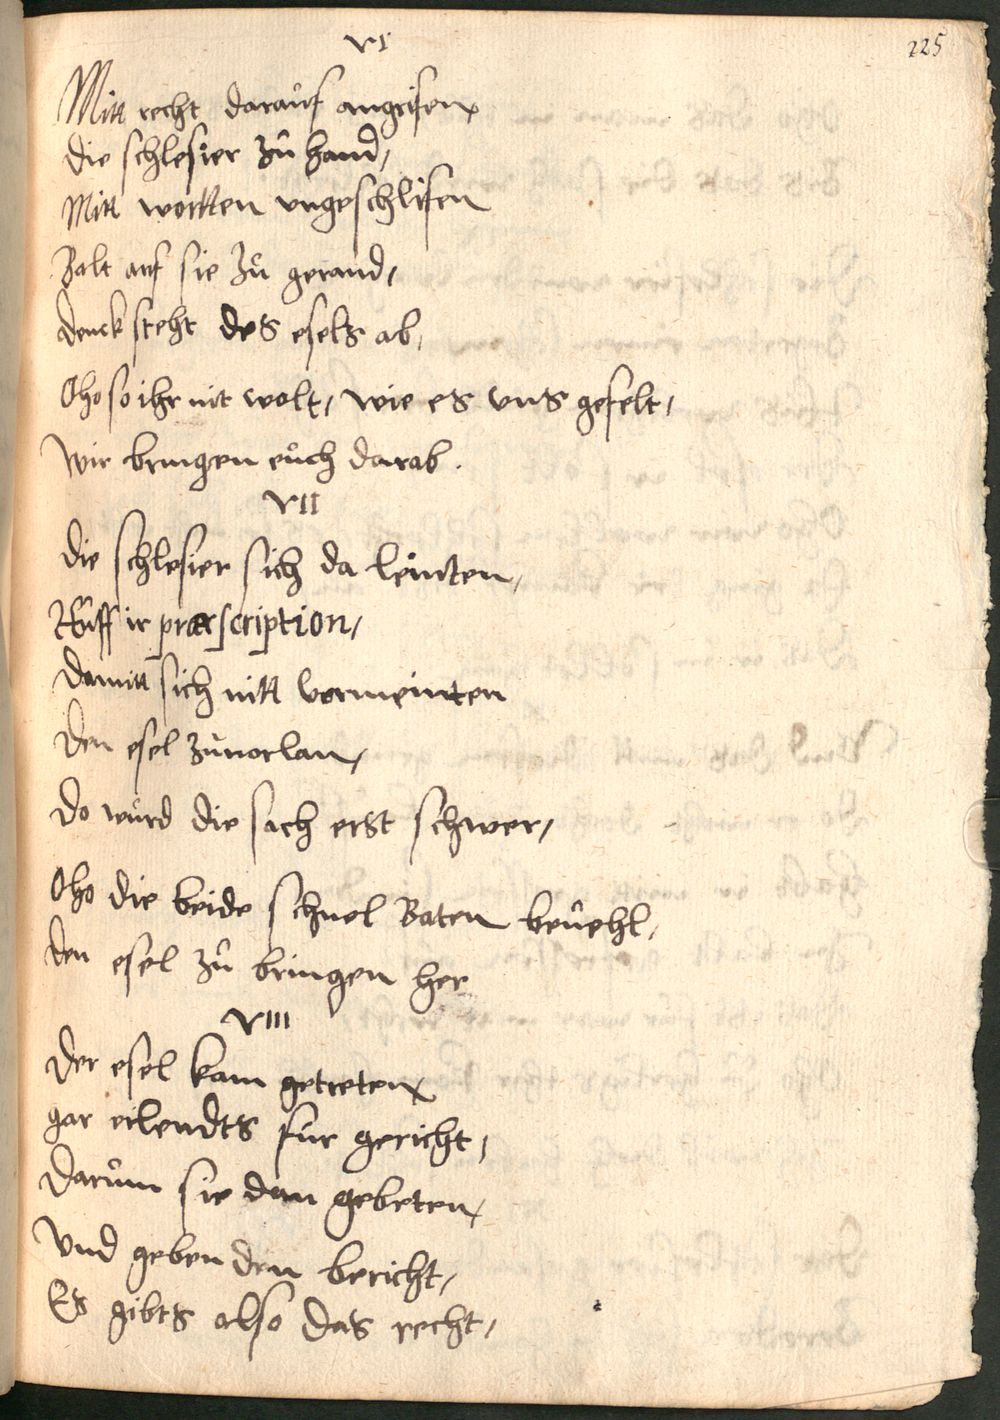 225
VI
Mitt recht darauf angrifen
die schlesier zu hand,
Mitt wortten ungeschlifen
Balt auf sie zu gerand,
denck steht des esels ab,
Oho so ihr nit wolt, wie es vns gefelt,
wir bringen euch darab.
VII
die schlesier sich da leinten,
Auff ir præscription,
damitt sich nitt vermeinten
den esel zuuorlan,
do wurd die sach erst schwer,
Oho die beide schnel Baten beuehl,
den esel zu bringen her
VIII
der esel kam getreten
gar eilendts fur gericht,
darum sie dan gebeten,
Vnd geben den bericht,
Es gibts also das recht,